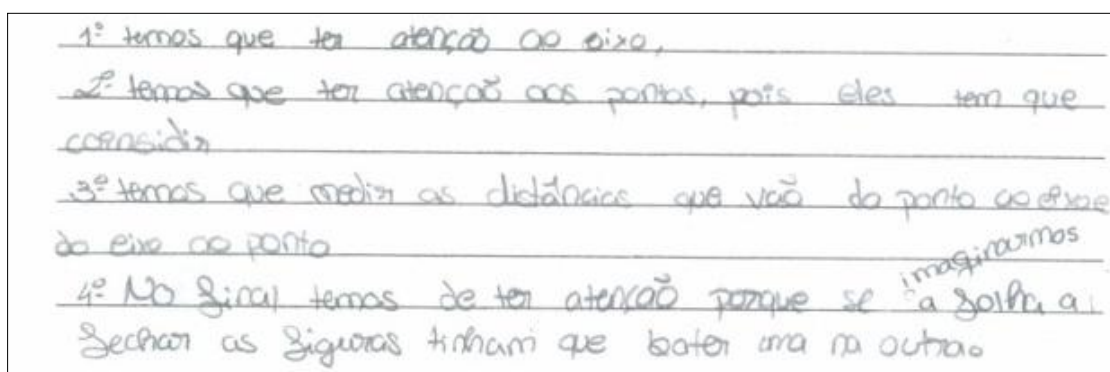 1º temos que ter atenção ao eixo,
2º temos que ter atenção aos pontos, pois eles tem que
coensidir
3º temos que medir as distâncias que vão do ponto ao eixo e
do eixo ao ponto
4º No final temos de ter atenção porque se imaginarmos a folha a
fechar as figuras tinham que bater uma na outra.